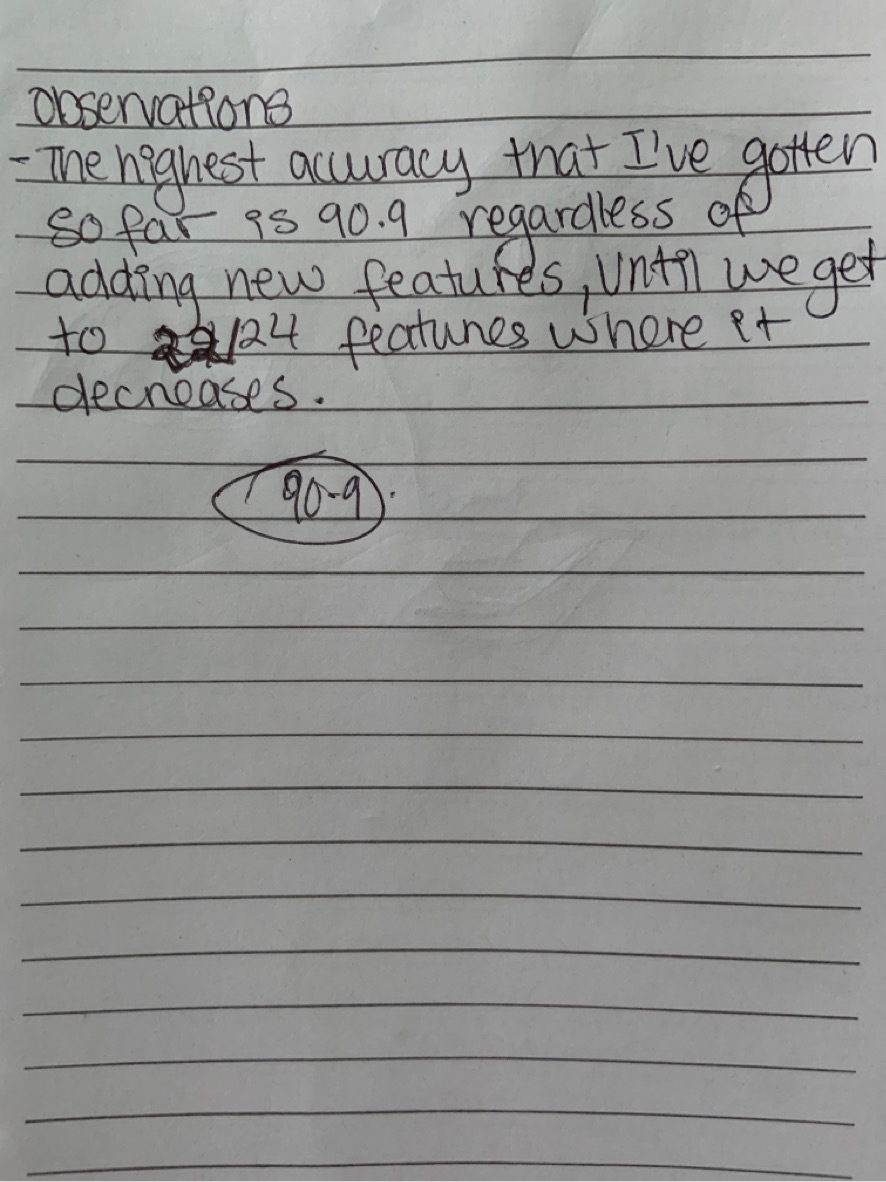 Observations
- The highest accuracy that I've gotten
so far is 90.9 regardless of
adding new features, Until we get
to 22/24 features where it
decreases.
90.9